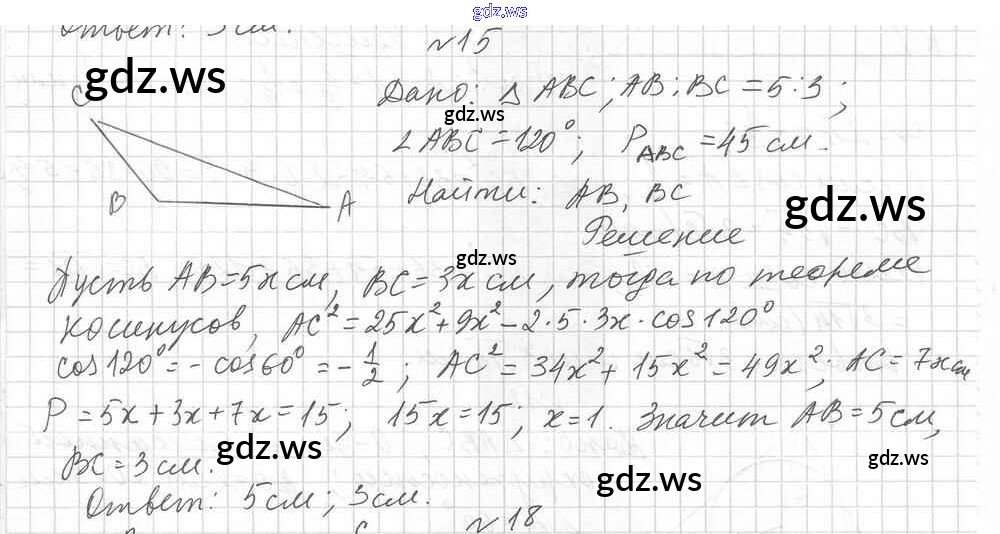 gdz.ws
Ответ: 3 см.
№15
gdz.ws
C
B
A
Дано: Δ ABC; AB : BC = 5 : 3;
gdz.ws
∠ ABC = 120°; P_ABC = 45 см.
Найти: AB, BC
gdz.ws
Решение
gdz.ws
Пусть AB = 5x см, BC = 3x см, тогда по теореме
косинусов, AC² = 25x² + 9x² - 2·5·3x·cos120°
cos120° = -cos60° = -1/2; AC² = 34x² + 15x² = 49x²; AC = 7x см
P = 5x + 3x + 7x = 15; 15x = 15; x = 1. Значит AB = 5 см,
BC = 3 см.
gdz.ws
gdz.ws
gdz.ws
Ответ: 5 см; 3 см.
№18